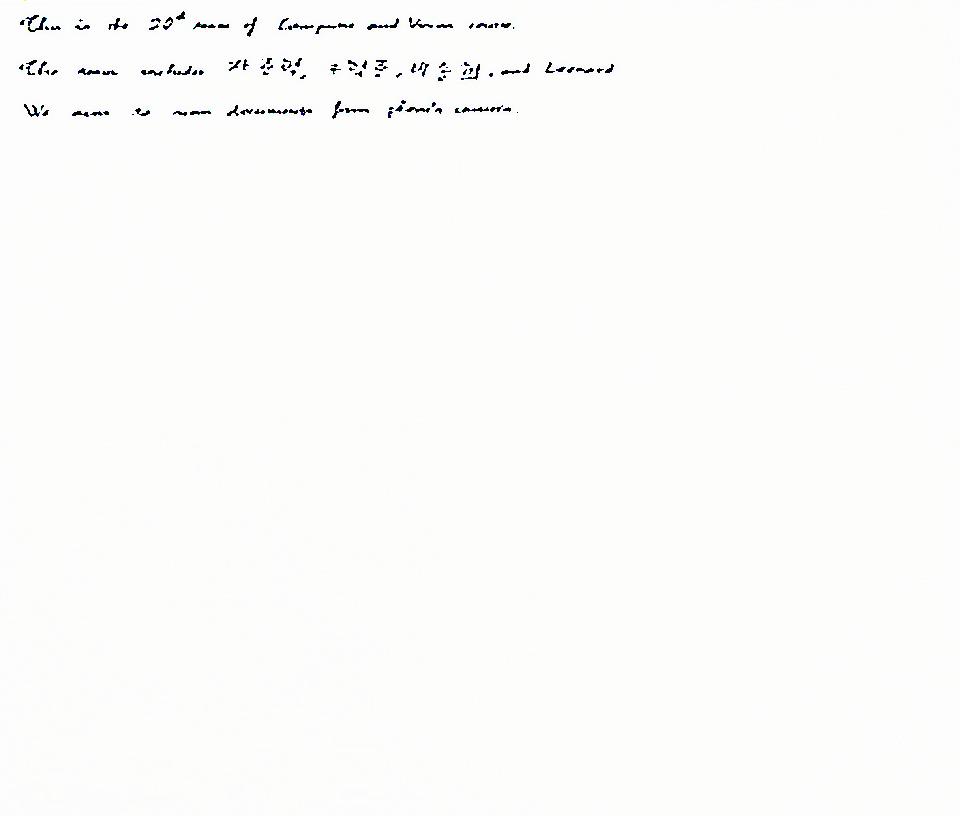 This is the 20th team of Computer and Vision course.
The team includes and Leonard
We aims to scan documents from phone's camera.